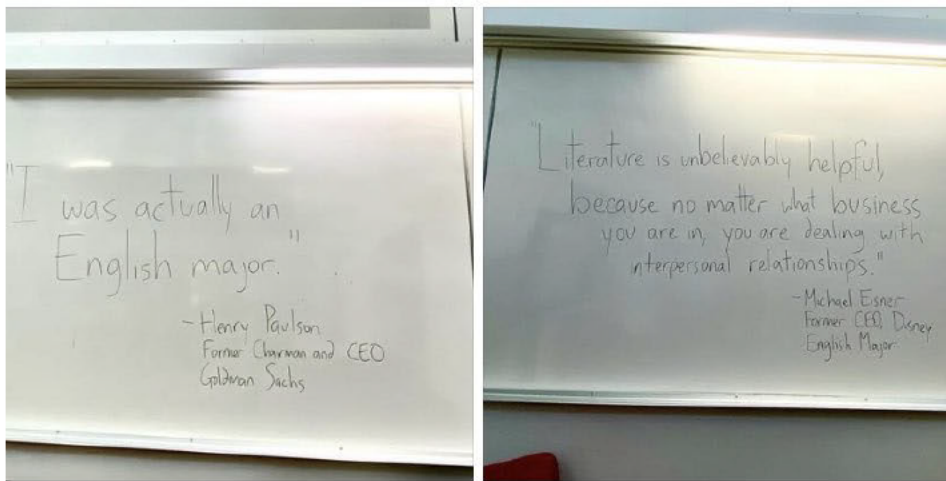 "I was actually an
English major."
-Henry Paulson
Former Chairman and CEO
Goldman Sachs
"Literature is unbelievably helpful,
because no matter what business
you are in, you are dealing with
interpersonal relationships."
-Michael Eisner
Former CEO, Disney
English Major